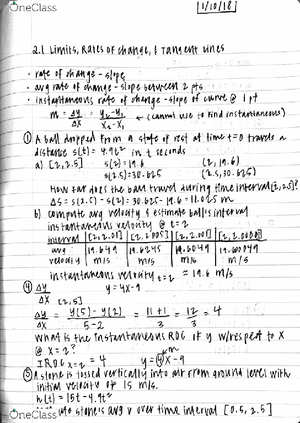 OneClass
1/10/18
2.1 Limits, Rates of Change, & Tangent Lines
• rate of change - slope
• avg rate of change - slope between 2 pts
• instantaneous rate of change - slope of curve @ 1 pt
m = Δy/Δx = y₂-y₁/x₂-x₁ → (cannot use to find instantaneous)
① A ball dropped from a state of rest at time t=0 travels a
distance s(t) = 4.9t² in t seconds
a) [2, 2.5] s(2) = 19.6 (2, 19.6)
s(2.5) = 30.625 (2.5, 30.625)
How far does the ball travel during time interval [2, 2.5]?
Δs = s(2.5) - s(2) = 30.625 - 19.6 = 11.025 m
b) compute avg velocity & estimate ball's
instantaneous velocity @ t=2
interval [2, 2.01] [2, 2.005] [2, 2.001] [2, 2.00001]
avg 19.649 19.6245 19.6049 19.600049
velocity m/s m/s m/s m/s
instantaneous velocity t=2 ≈ 19.6 m/s
④ y = 4x-9
Δy/Δx [2, 5]
Δy/Δx = y(5) - y(2)/5-2 = 11+1/3 = 12/3 = 4
What is the instantaneous ROC of y w/respect to x
@ x=2?
IROC x=2 = 4 y = 4x-9
m
⑤ A stone is tossed vertically into air from ground level with
initial velocity of 15 m/s.
h(t) = 15t - 4.9t²
stone's avg v over time interval [0.5, 2.5]
OneClass